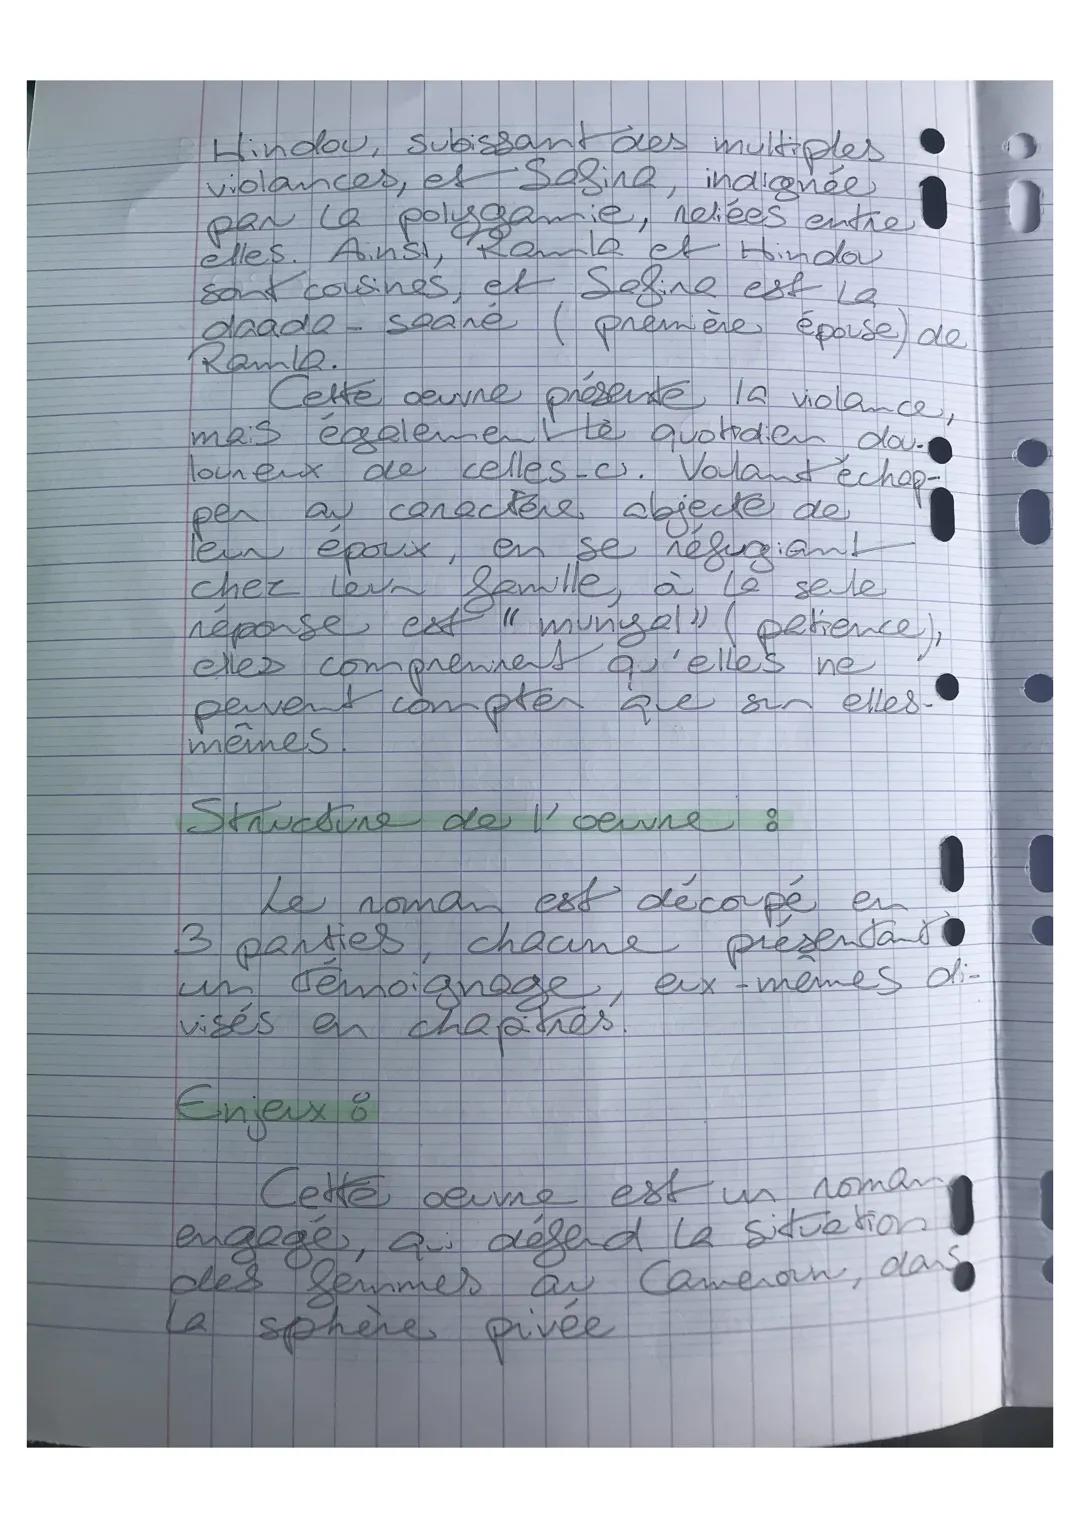 Hindou, subissant des multiples
violances, et Safira, indignée
par la polygamie, reliées entre
elles. Ainsi, Ramla et Hindou
sont cousines, et Safira est la
daada-saaré (première épouse) de
Ramla.
Cette oeuvre présente la violance,
mais également le quotidien dou-
loureux de celles-ci. Voulant échap-
per au caractère objecte de
leur époux, en se réfugiant
chez leur famille, à la seule
réponse est "munyal" (patience),
elles comprennent qu'elles ne
peuvent compter que sur elles-
mêmes.
Structure de l'oeuvre :
Le roman est découpé en
3 parties, chacune présentant
un témoignage, eux-mêmes di-
visés en chapitres.
Enjeux :
Cette oeuvre est un roman
engagé, qui défend la situation
des femmes au Cameroun, dans
la sphère pivée